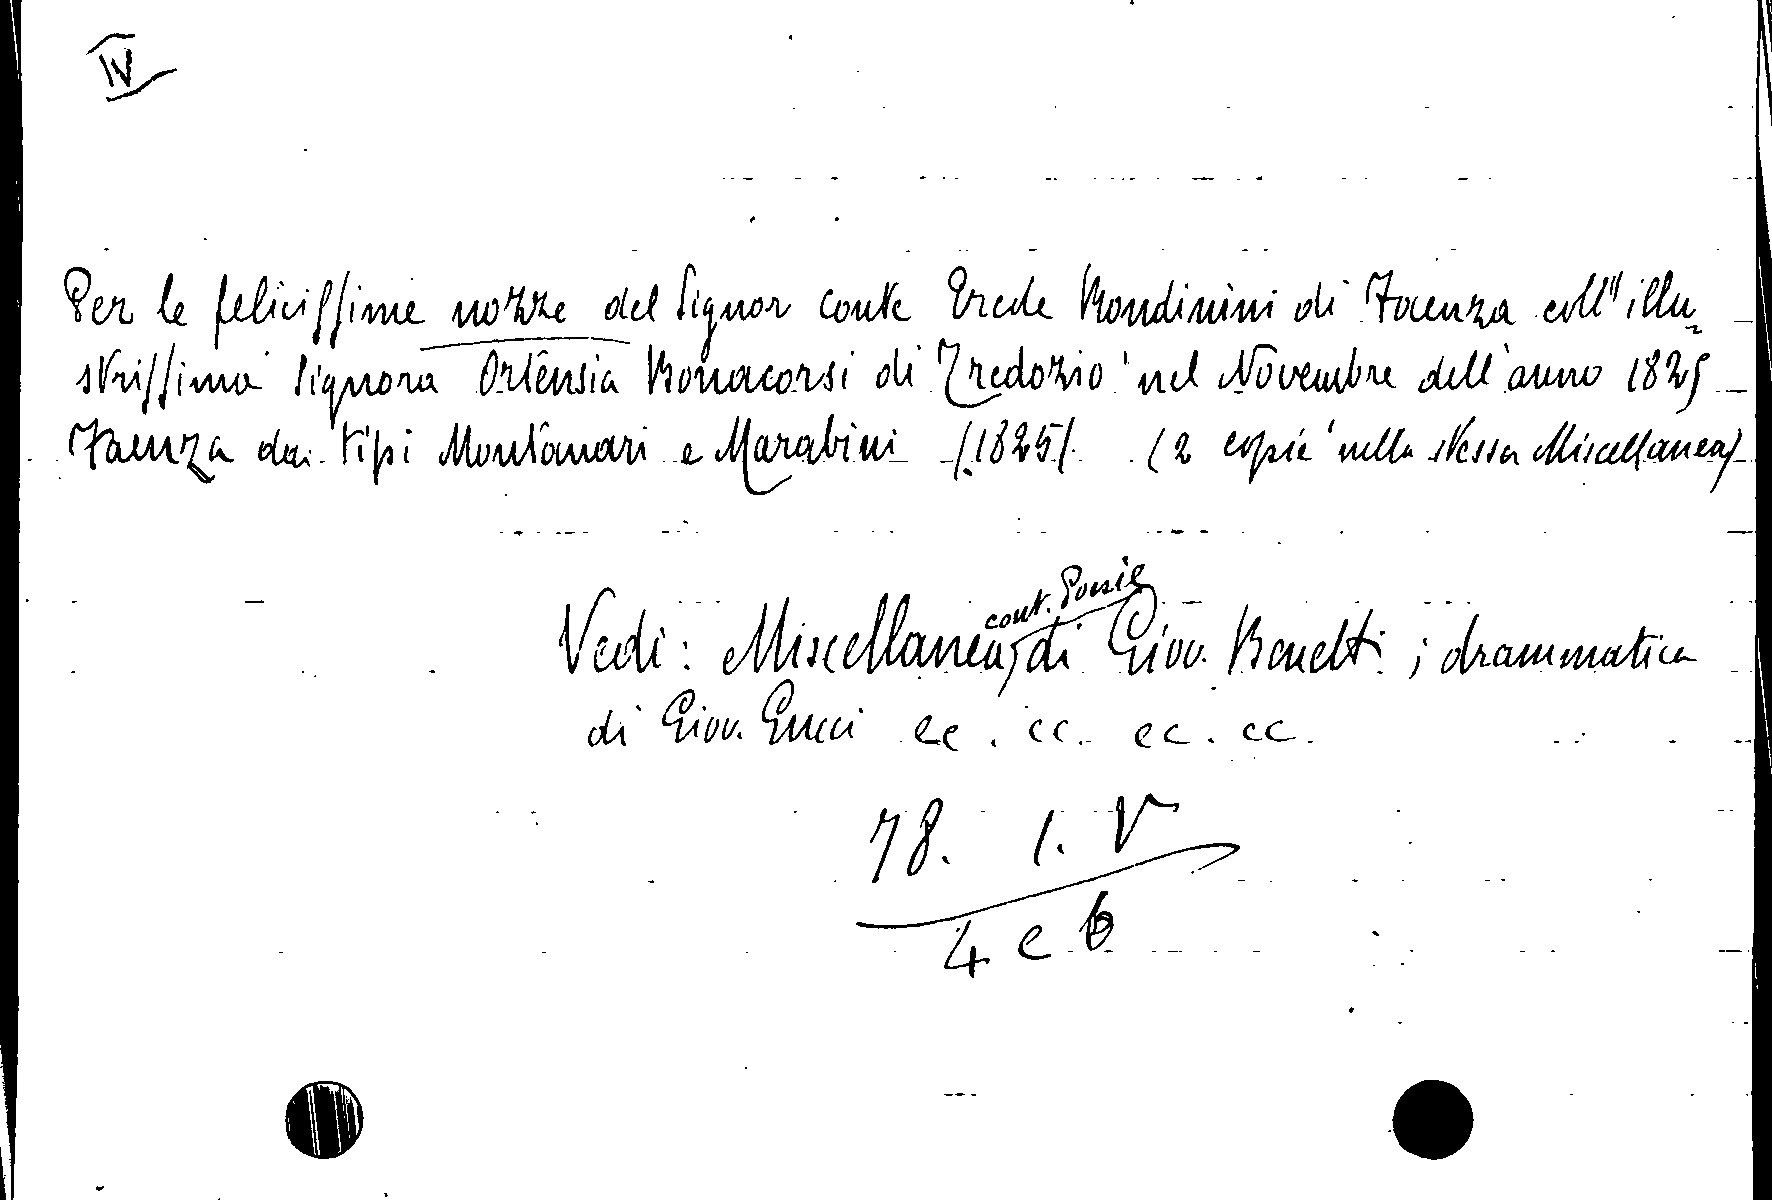 IV
Per le felicissime nozze del Signor conte Erede Rondinini di Faenza coll' illu=
strissima Signora Ortensia Bonacorsi di Tredozio nel Novembre dell'anno 1825
Faenza dai tipi Montanari e Marabini /.1825/. (2 copie nella stessa Miscellanea)
cont. Poesie
Vedi: Miscellanea, di Giov. Benetti; drammatica
di Giov. Gucci ec. ec. ec. ec.
78. 1. V
4 e 6